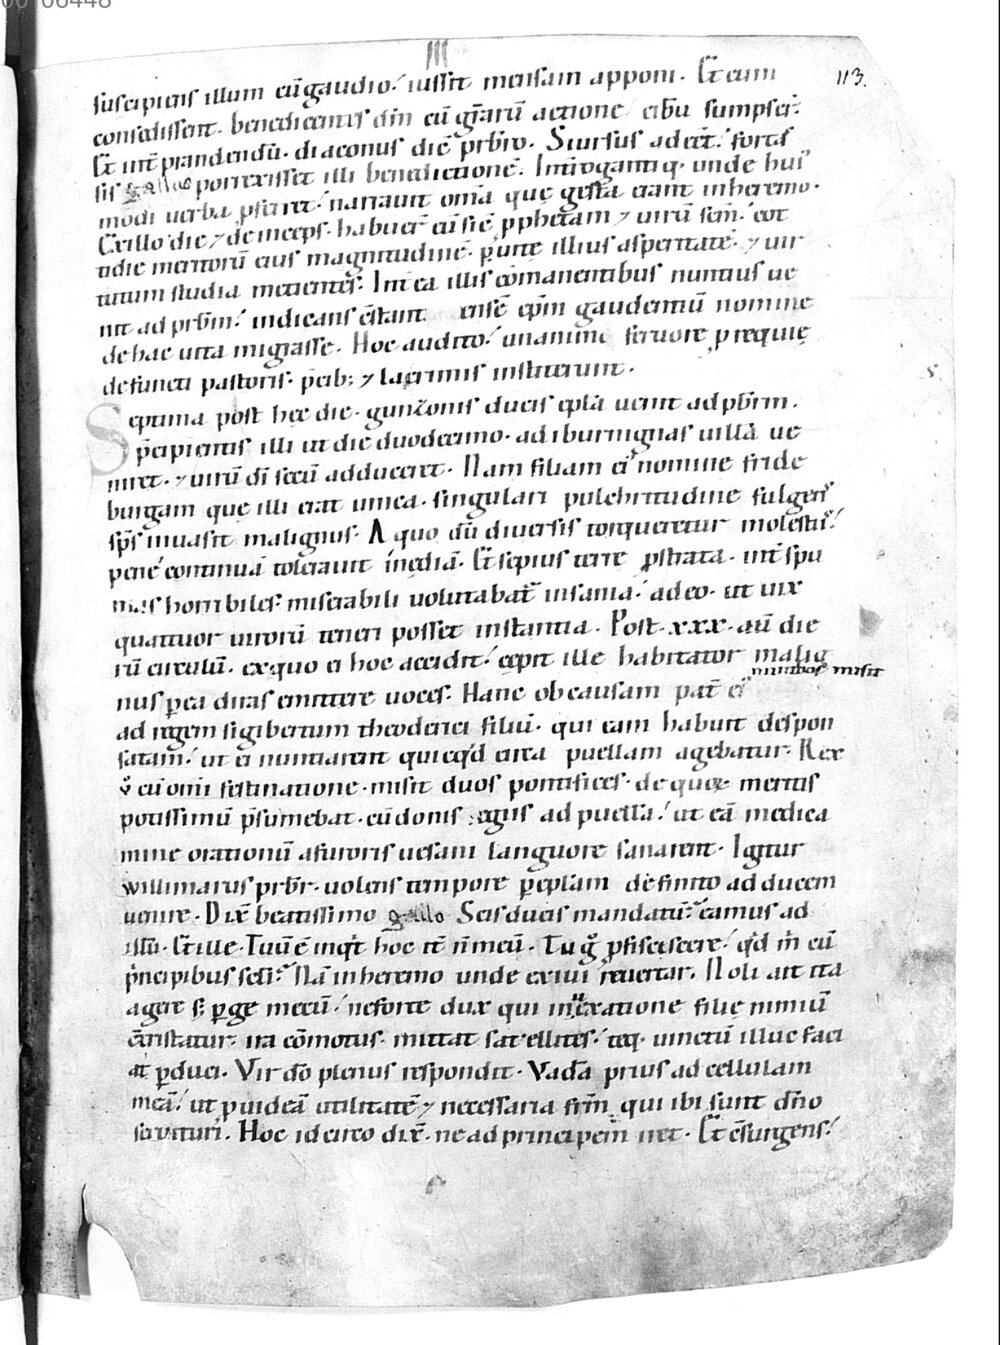 00106448
III
113.
suscipiens illum cū gaudio; iussit mensam apponi. Et cum
consedissent. benedicentes dn̄m cū gr̄arū actione cibū sumpser̄.
Et int̄ prandendū. diaconus dic̄ prb̄ro. Si ursus adeēt; forsā
sis gallus porrexisset illi benedictionē. Interroganti q; unde hui᾿
modi uerba ꝓferret; narrauit om̄ia quę gesta erant in heremo.
Ex illo die ⁊ deinceps. habuer̄ eū sic̄ ꝓphetam ⁊ uirū sc̄m; cot
tidie meritorū eius magnitudinē. ꝑ uitę illius asperitatē. ⁊ uir
tutum studia metientes. Int̄ea illis cōmanentibus nuntius ue
nit ad prb̄m; indicans ēp̄m gaudentiū nomine
de hac uita migrasse. Hoc audito; unanimi feruore ꝓ requię
defuncti pastoris. p̄cib; ⁊ lacrimis institerunt.
Septima post hęc die. gunzonis ducis epl̄a uenit ad pb̄rm.
p̄cipientis illi ut die duodecimo. ad iburningas uillā ue
niret. ⁊ uirū dī secū adduceret. Nam filiam ei᾿ nomine fride
burgam quę illi erat unica. singulari pulchritudine fulgens
sp̄s inuasit malignus. A quo dū diuersis torqueretur molestiis;
pene continuā tolerauit inediā. Et sepius terre ꝓstrata. int̄ spu
mas horribiles. miserabili uolutabat᾿ insania; adeo. ut uix
quattuor uirorū teneri posset instantia. Post .xxx. aūt die
rū circulū. ex quo ei hoc accidit; cępit ille habitator malig
nus ꝑ ea diras emittere uoces. Hanc ob causam pat̄ ei᾿ nuntios misit
ad regem sigibertum theoderici filiū. qui eam habuit despon
satam; ut ei nuntiarent quicqd circa puellam agebatur. Rex
v̊ cū omi festinatione. misit duos pontifices. de quoꝝ meritis
potissimū p̄sumebat. cū donis regiis ad puellā; ut eā medica
mine orationū a furoris uesani languore sanarent. Igitur
willimarus prb̄r. uolens tempore ꝑ epl̄am definito ad ducem
uenire. Dix̄ beatissimo gallo. Scis ducis mandatū; eamus ad
illū. Et ille. Tuū ē inq̇t hoc it̄ n̄ meū. Tu g̊ ꝓficiscere; qd m̄ cū
p̄ncipibus scl̄i; Nā in heremo unde exiui reuertar. Noli ait ita
agere s; perge mecū; ne forte dux qui in uexatione filię nimiū
c̄ristatur. ira cōmotus. mittat satellites; teq; uinctū illuc faci
at ꝑduci. Vir dō plenus respondit. Vadā prius ad cellulam
meā; ut ꝓuideā utilitatē ⁊ necessaria frm̄ qui ibi sunt dn̄o
seruituri. Hoc idcirco dix̄. ne ad principem iret. Et c̄surgens;